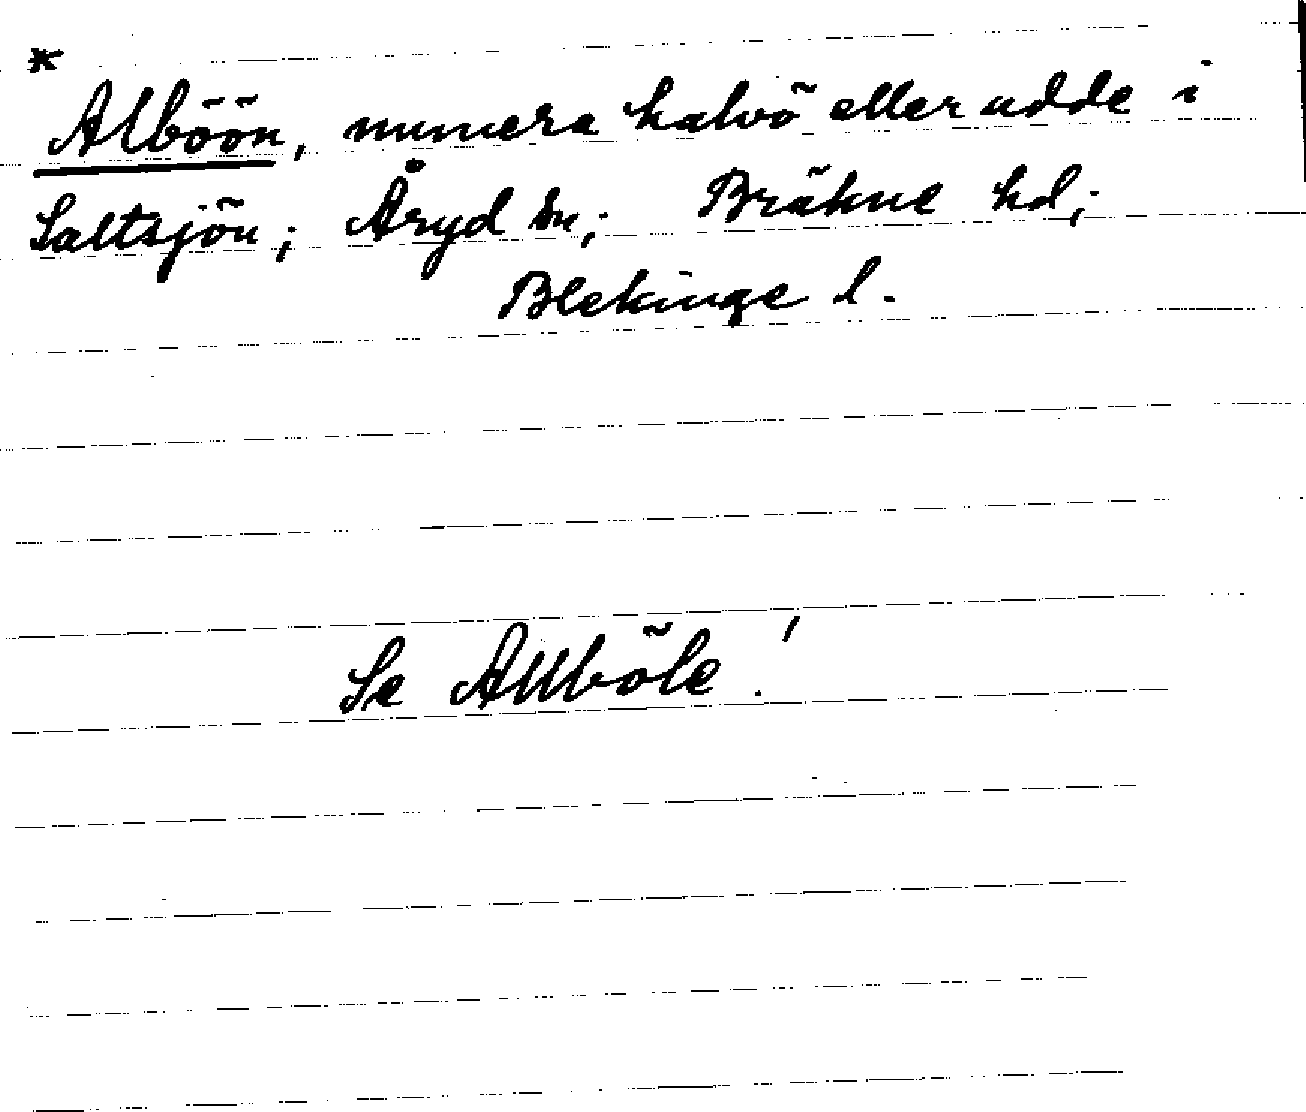 *
Alböön, numera halvö eller udde i
Saltsjön; Åryd sn; Bräkne hd;
Blekinge l.
Se Allböle!